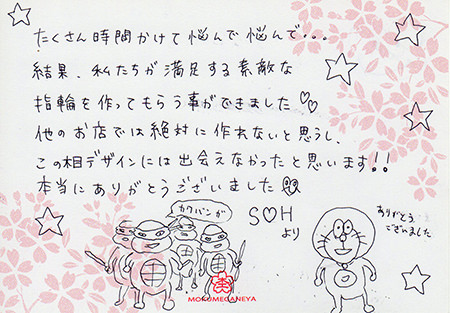 たくさん時間かけて悩んで悩んで・・・
結果、私たちが満足する素敵な
指輪を作ってもらう事ができました♡♡
他のお店では絶対に作れないと思うし、
この相デザインには出会えなかったと思います!!
本当にありがとうございました
カワバンガ
S♡H
より
ありがとう
ございました
MOKUMEGANEYA